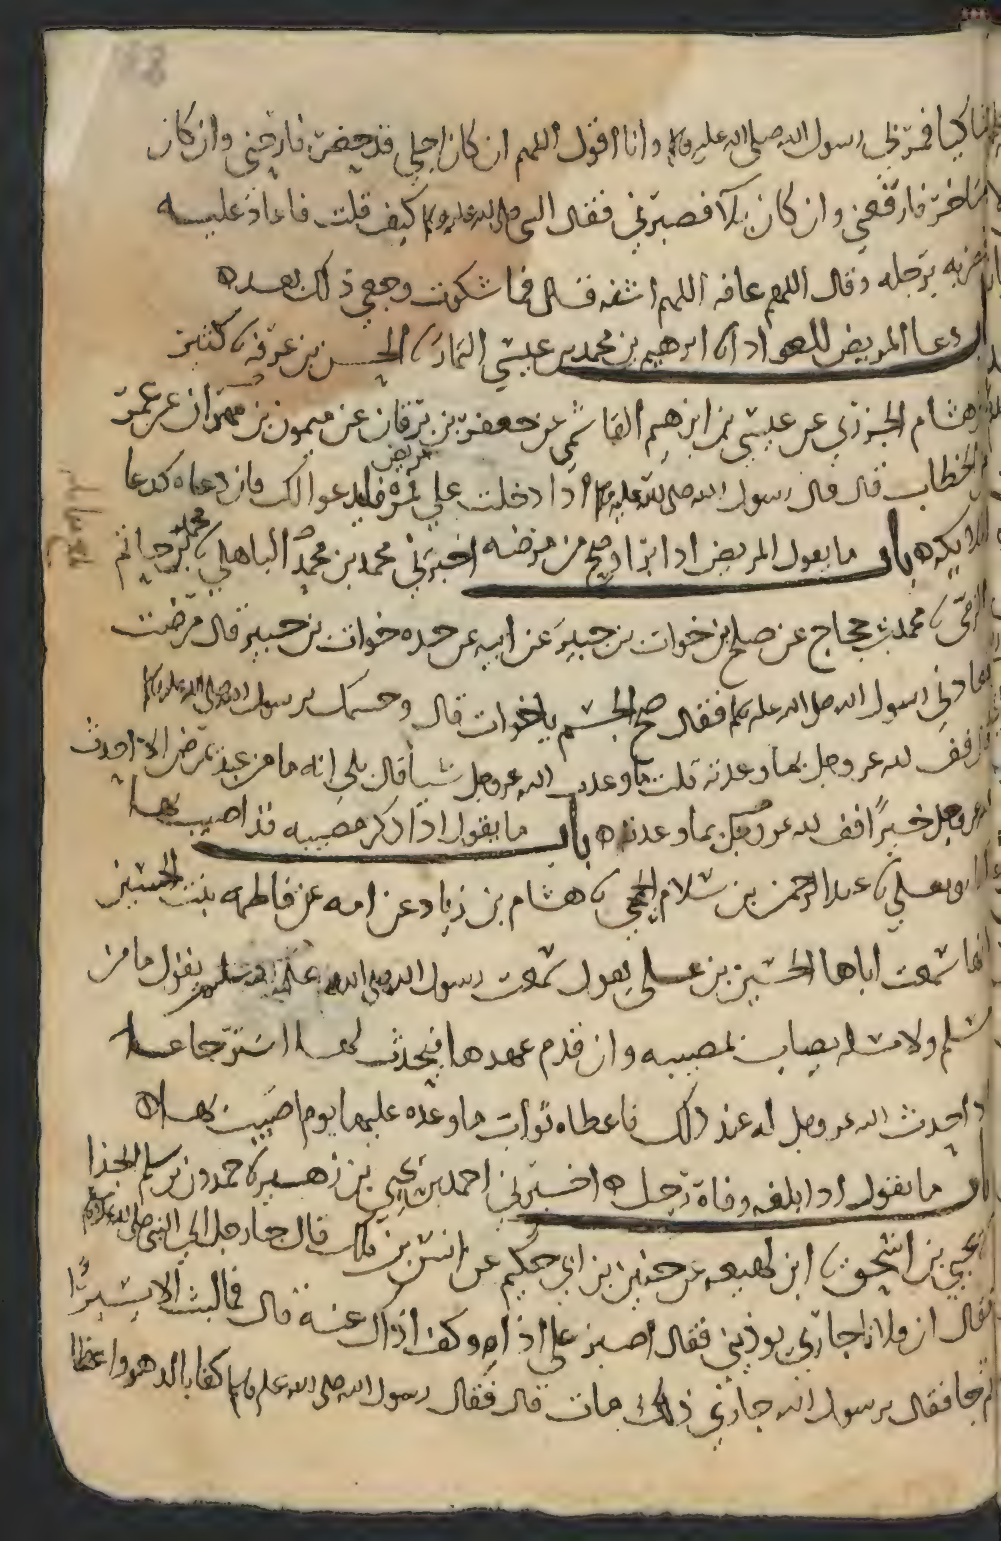 شاكيا فمر بي رسول الله صلى الله عليه وسلم وانا اقول اللهم ان كان اجلي قد حضر فارحني وان كان
متاخر فارفعني وان كان بلا فصبرني فقال النبي صلى الله عليه وسلم كيف قلت فاعاد عليه
فضربه برجله وقال اللهم عافه اللهم اشفه قال فما شكوت وجعي ذلك بعد ه
باب دعا المريض للعواد ابرهيم بن محمد بن عيسى التمار الحسن بن عرفة كثير
بن هشام الجزري عن عيسى بن ابرهيم الهاشمي عن جعفر بن برقان عن ميمون بن مهران عن عمر
بن الخطاب قال قال رسول الله صلى الله عليه وسلم اذا دخلت على مريض فمره فليدعوا لك فان دعاه كدعا
الملايكه ه باب ما يقول المريض اذا برا وصح من مرضه اخبرني محمد بن محمد الباهلي محمد بن حيا ثم
محمد بن حجاج عن صلح بن خوات بن جبير عن ابيه عن جده خوات بن جبير قال مرضت
فعادني رسول الله صلى الله عليه وسلم فقال صح الجسم يا خوات قال وجسمك يرسول الله صلى الله عليه وسلم
قال فف لله عز وجل بما وعدته قلت ما وعدت الله عز وجل شيا قال بلى انه ما من عبد يمرض الا احدث
لله عز وجل خيرا فف لله عز وجل بما وعدته ه باب ما يقول اذا ذكر مصيبه قد اصيب بها
ابو يعلى عبد الرحمن بن سلام الجمحي هشام بن زياد عن امه عن فاطمه بنت الحسين
انها سمعت اباها الحسين بن علي يقول سمعت رسول الله صلى الله عليه وسلم يقول ما من
مسلم ولا مسلمه يصاب بمصيبه وان قدم عهدها فيحدث لها استرجاعا
الا احدث الله عز وجل له عند ذلك فاعطاه ثواب ما وعده عليها يوم اصيب بها ه
باب ما يقول اذا بلغه وفاة رجل ه اخبرني احمد بن يحيى بن زهير حمدون بن سلم الجذا
يحيى بن اسحق ابن لهيعه عن حنين بن ابي حكيم عن انس بن ملك قال جا رجل الى النبي صلى الله عليه وسلم
فقال ان فلانا جاري يوذيني فقال اصبر على اذاه وكف اذاك عنه قال فما لبث الا يسيرا
ثم جا فقال يرسول الله جاري ذلك مات قال فقال رسول الله صلى الله عليه وسلم كفا بالدهر واعظا